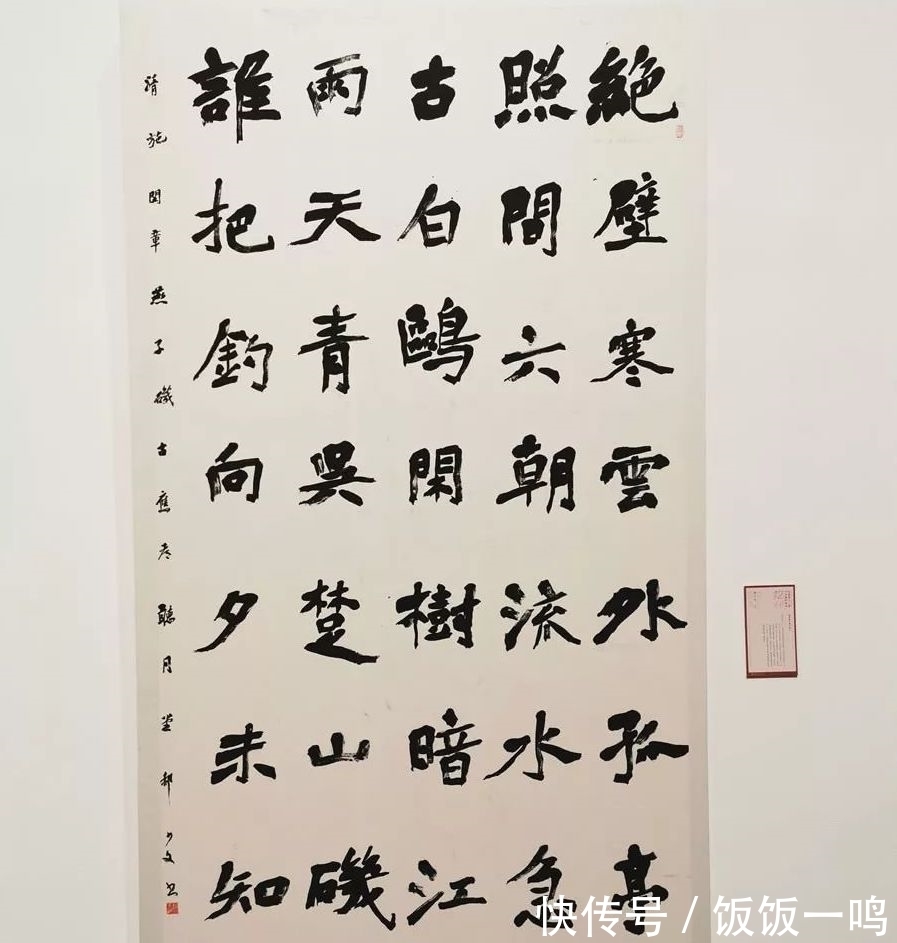 絕壁寒雲外孤亭
照間六朝流水急
古白鷗閑樹暗江
雨天青吳楚山磯
誰把釣向夕未知
清施閏章燕子磯古應聽月堂少文書
快传号/饭饭一鸣